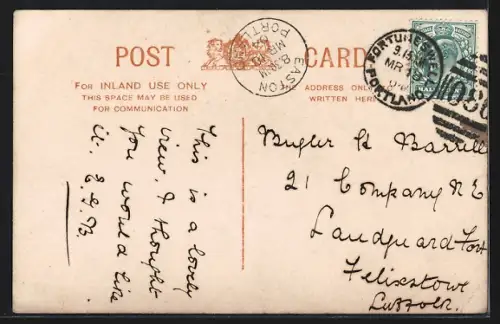 POST CARD
FOR INLAND USE ONLY
THIS SPACE MAY BE USED
FOR COMMUNICATION
THE ADDRESS ONLY
WRITTEN HERE
EASTON
8.30 AM
MR
PORTL
FORTUNESWELL
9.15
MR 13
PORTLAND
This is a lovely
view. I thought
you would like
it. E.G.B.
Bugler H Barrell
21 Company R.E
Landguard Fort
Felixstowe
Suffolk.